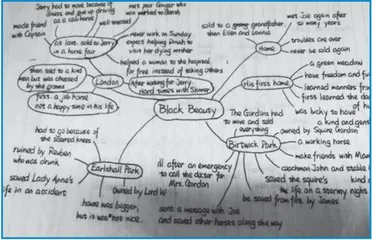 Jerry had to move because of
illness and give up driving
as a cab horse
made friend
with Captain
well treated
met poor Ginger who
was worked to death
never work on Sunday
expect helping Polly to
visit her dying mother
At last sold to Jerry
in a horse fair
helped a woman to the hospital
for free instead of taking others
then sold to a kind
man but was cheated
by the grooms
London
After waiting for Jerry
Hard times with Skinner
first: a job horse
not a happy time in his life
sold to a young grandfather
then Ellen and Lavinia
met Joe again after
so many years
Home
troubles are over
never be sold again
Black Beauty
a green meadow
His first home
have freedom and fu
learned manners fr
first learned the da
of hu
was lucky to have
a kind and gent
The Gordons had
to move and sold
everything
owned by Squire Gordon
Birtwick Park
a working horse
make friends with Mer
coachman John and stable
saved the squire's
life on a stormy night
kind
be saved from fire by James
ill after an emergency
to call the doctor for
Mrs. Gordon
sent a message with Joe
and saved other horses along the way
had to go because of
the scarred knees
ruined by Reuben
who was drunk
Earlshall Park
saved Lady Anne's
life in an accident
owned by Lord W
house was bigger,
but it was not nice.